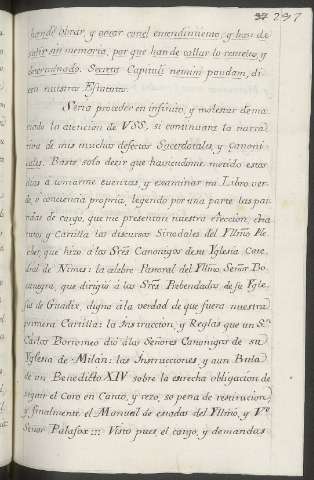 237
han de obrar, y votar con el entendimiento, y han de
salir sin memoria, por que han de callar lo resuelto, y
determinado. Secreta Capituli nemini pandam, di-
cen nuestros Estatutos.
Seria proceder en infinito, y molestar dema-
siado la atencion de VSS, si continuara la narra-
tiva de mis muchos defectos Sacerdotales, y Canoni-
cales. Baste solo decir que haviendome metido estos
dias à tomarme cuentas, y examinar mi Libro ver-
de, ò conciencia propria, leyendo por una parte las par-
tidas de cargo, que me presentan nuestra ereccion, esta-
tutos y Cartilla: los discursos Sinodales del Yllmo. Fle-
chier, que hizo a los Sres. Canonigos de su Yglesia Cate-
dral de Nimes: la celebre Pastoral del Yllmo. Señor Bo-
canegra, que dirigiò a los Sres. Prebendados de su Ygle-
sia de Guadix, digna à la verdad de que fuera nuestra
primera Cartilla: la Instruccion, y Reglas que un Sn.
Carlos Borromeo diò à los Señores Canonigos de su
Yglesia de Milan: las Instrucciones, y aun Bula
de un Benedicto XIV sobre la estrecha obligacion de
seguir el Coro en Canto, y rezo, so pena de restitucion
y finalmente el Manual de estados del Yllmo, y Ve.
Señor Palafox::: Visto pues el cargo, y demandas